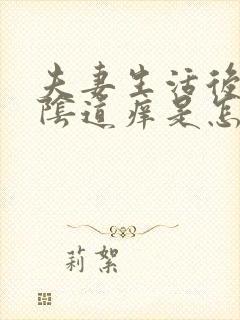 夫妻生活後
陰道痒是怎
莉絮